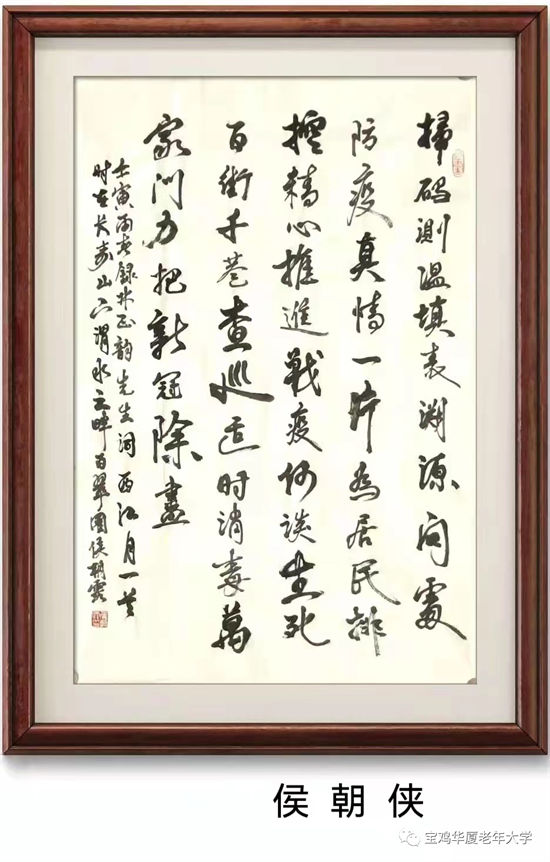 掃碼测温填表溯源问處
防疫真情一片为居民排
精心推進戰疫何谈生死
百街千巷查巡适时消毒萬
家门力把新冠除盡
壬寅録正韵先生词西江月一首
时在长寿山下渭水之畔百翠園侯朝
侯朝侠
宝鸡华厦老年大学